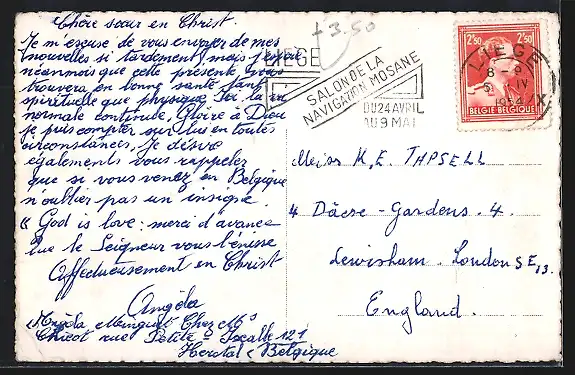 Chère sœur en Christ.
Je m'escuse de vous envoyer de mes
nouvelles si tardement, mais j'espère
néanmois que cette présente vous
trouvera en bonne santé tant
spirituelle que physique. Ici la vie
normale continude, Gloire à Dieu
je puis compter sur lui en toutes
circonstances, Je désire
également vous rappeler
que si vous venez en Belgique
n'oublier pas un insigne.
« God is love : merci d'avance
Que le Seigneur vous bénisse
Affectueusement en Christ
Angéla
Angéla Chez Mr
rue Petite 121
Herstal « Belgique
+3.50
LIEGE
SALON DE LA
NAVIGATION MOSANE
DU 24 AVRIL
AU 9 MAI
2F50 2F50
BELGIE BELGIQUE
LIEGE
Meiss K.E. TAPSELL
4 Dacre-Gardens. 4.
Lewisham. London SE 13.
England.